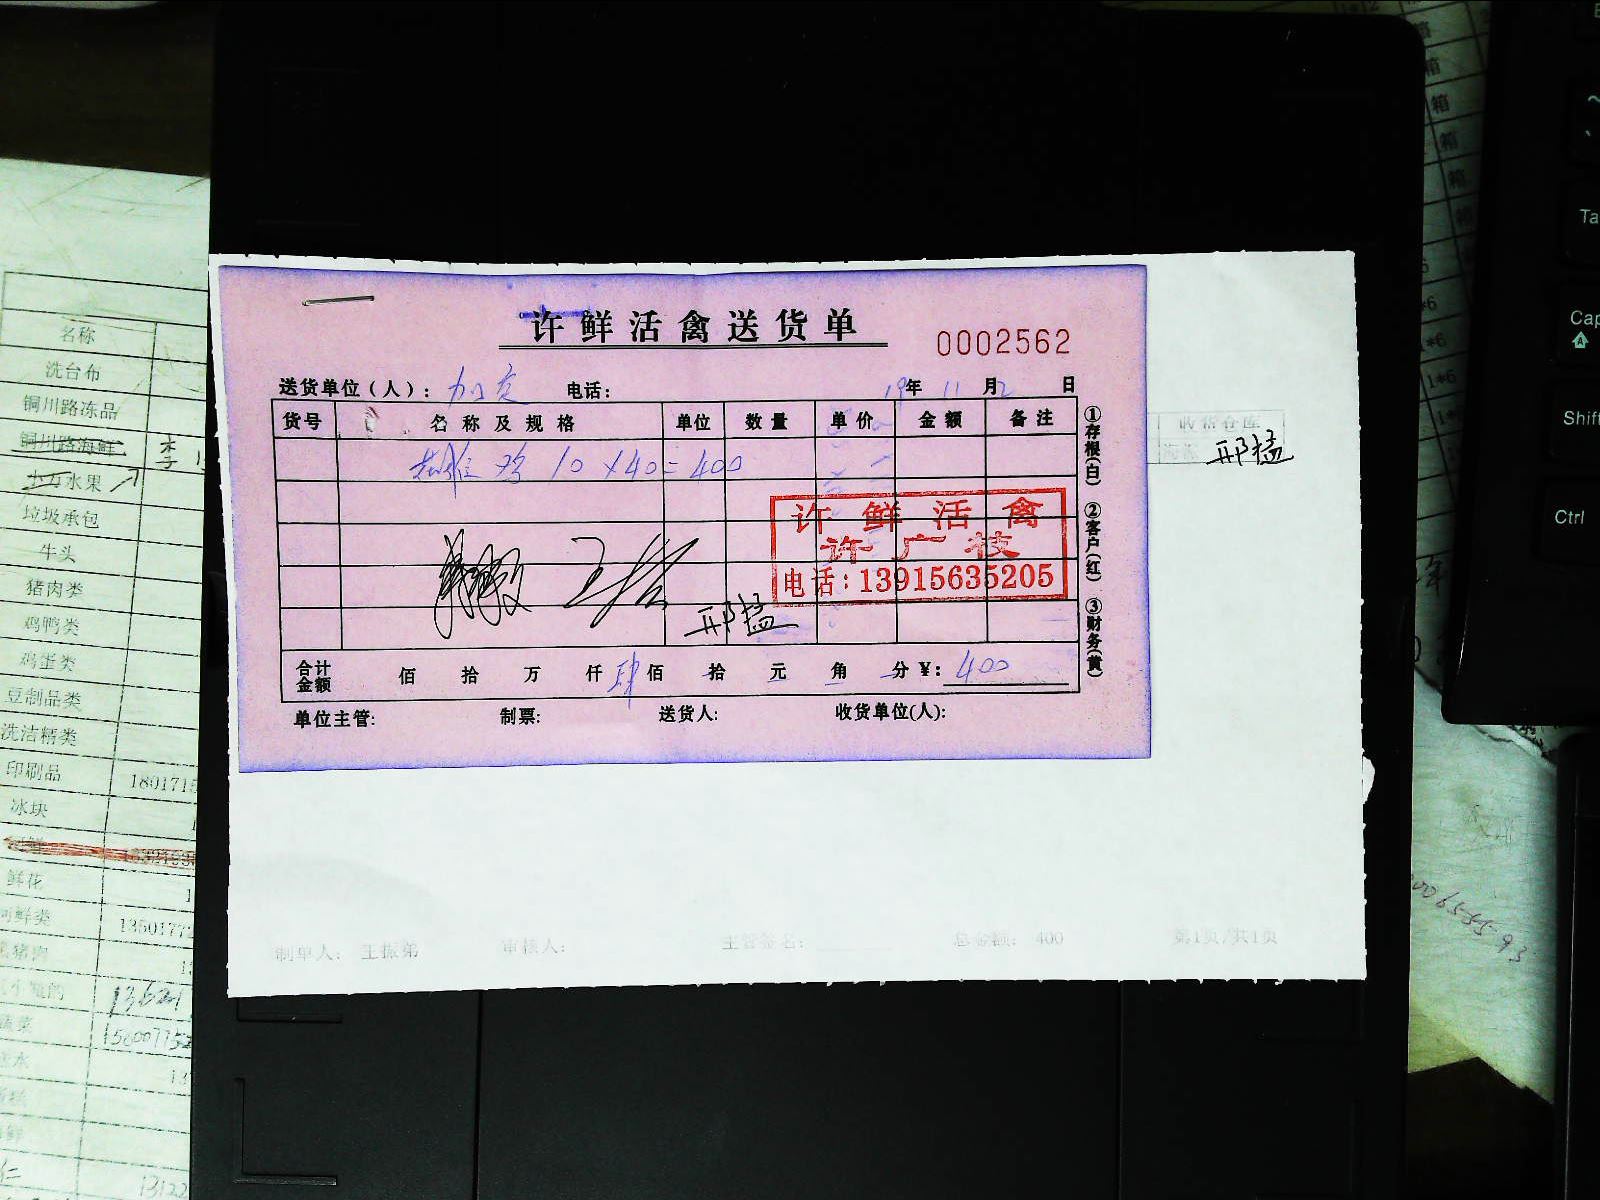 许鲜活禽送货单
0002562
送货单位(人): 电话: 19年 11月2日
货号 名称及规格 单位 数量 单价 金额 备注
鸡 10×40=400
许鲜活禽
许广技
电话:13915635205
邢猛
合计金额 佰 拾 万 仟 肆佰 拾 元 角 分 ¥: 400
单位主管: 制票: 送货人: 收货单位(人):
①存根(白) ②客户(红) ③财务(黄)
收货仓库
邢猛
制单人: 王振弟 审核人: 主管签名: 总金额: 400 第1页/共1页
名称
洗台布
铜川路冻品
铜川路海鲜 李
水果
垃圾承包
牛头
猪肉类
鸡鸭类
鸡蛋类
豆制品类
洗洁精类
印刷品 1801715
冰块
鲜花
河鲜类 1350177
13621
1500077
1312
箱
箱
箱
箱
Ta
Cap
Shift
Ctrl